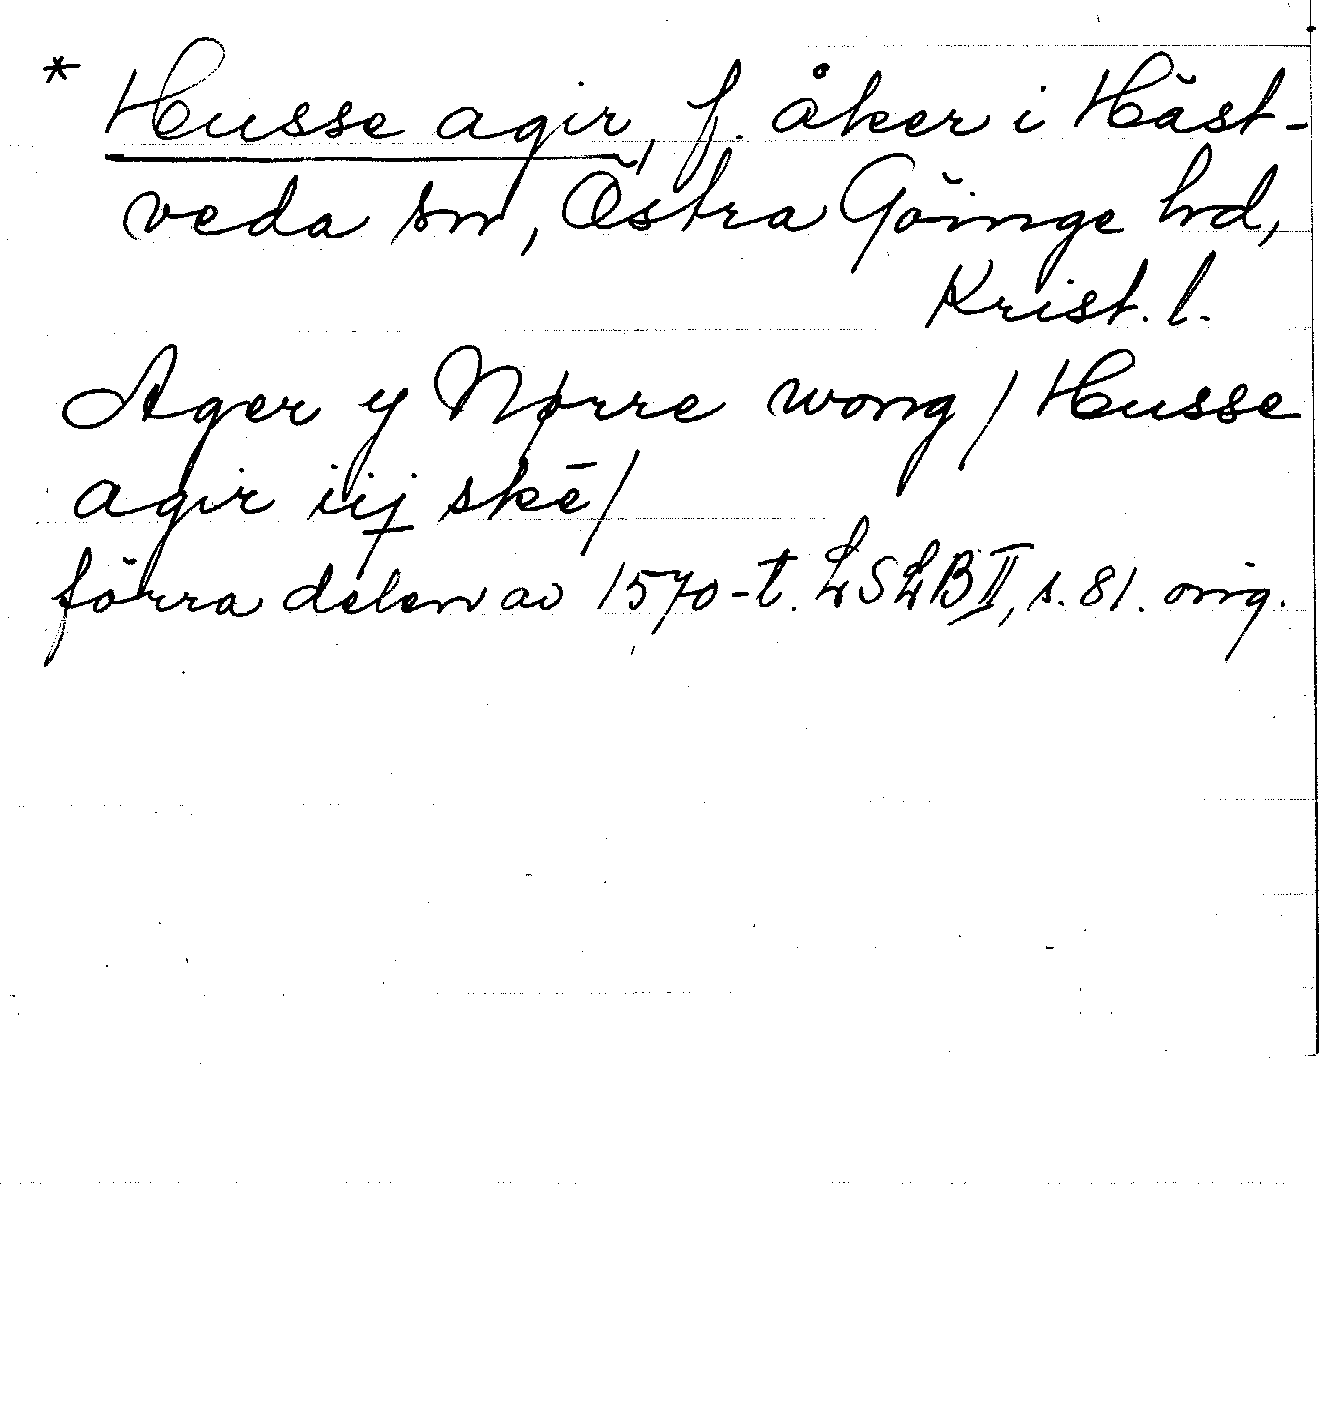 * Husse agir, f. åker i Häst-
veda sn, Östra Göinge hd,
Krist. l.
Ager y Nørre wong / Husse
agir iij skē /
förra delen av 1570-t. LSLB II, s. 81. orig.